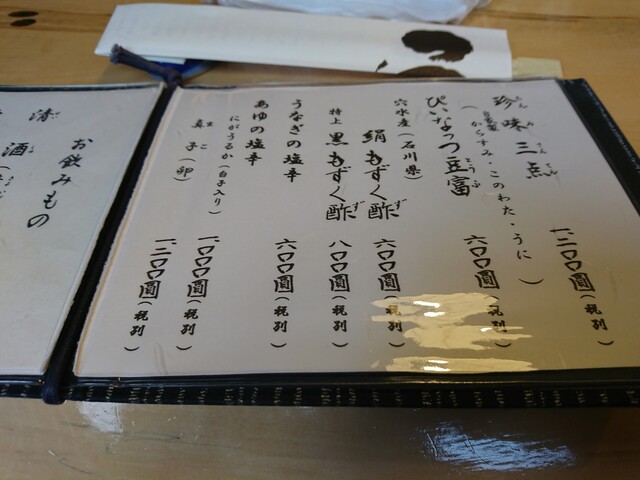 珍味三点
ちんみさんてん
自家製
(からすみ・このわた・うに)
一、二〇〇圓(税別)
ぴいなっつ豆富
とうふ
六〇〇圓(税別)
穴水産(石川県)
絹もずく酢
ず
六〇〇圓(税別)
特上 黒もずく酢
ず
八〇〇圓(税別)
うなぎの塩辛
六〇〇圓(税別)
あゆの塩辛
にがうるか(白子入り)
一、〇〇〇圓(税別)
真子(卵)
まこ
一、二〇〇圓(税別)
お飲みもの
清酒